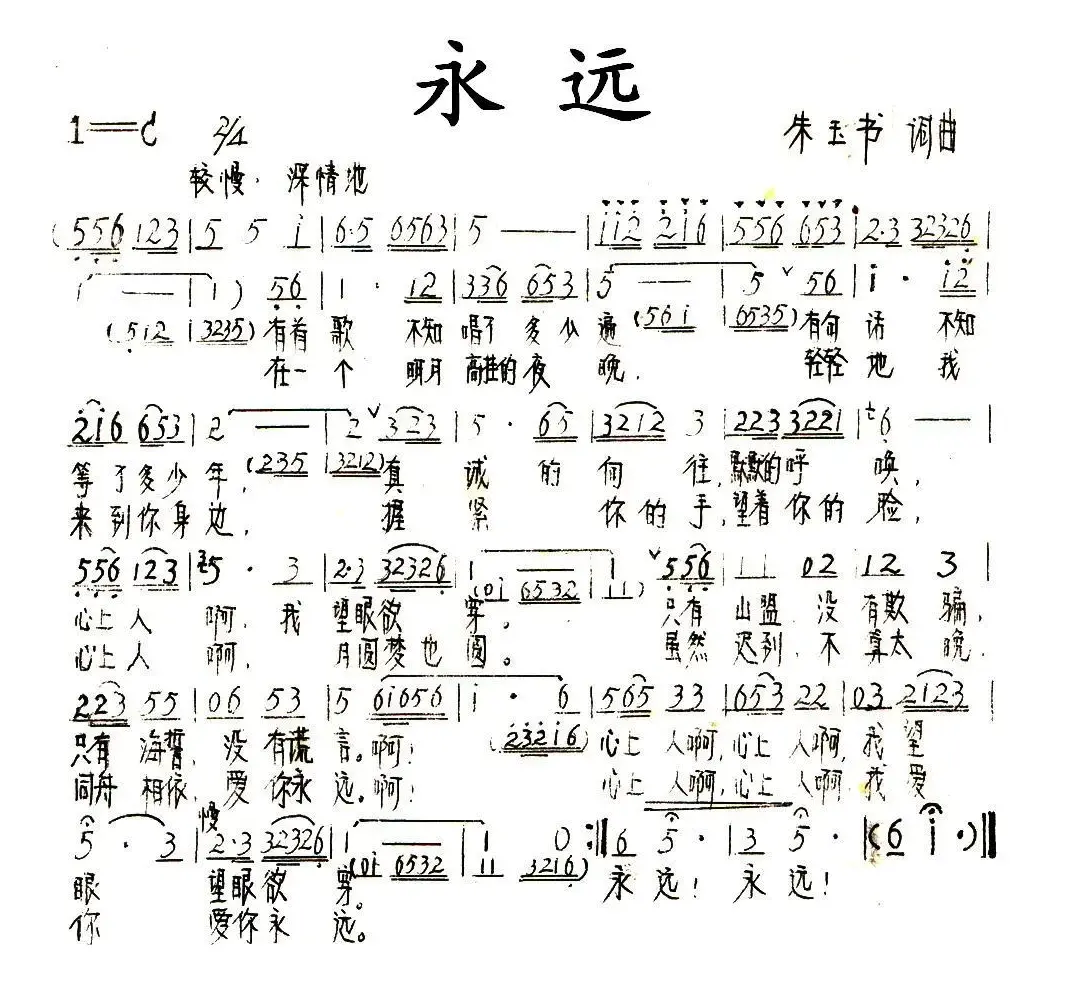 永 远
1=C 2/4 朱玉书 词曲
较慢. 深情地
(556 123 | 5 5 i | 6·5 0563 | 5 — — | i i 2 2 i 6 | 556 653 | 2·3 32326 |
1 — | 1) 56 | 1 · 12 | 336 653 | 5 — | 5 ˅ 56 | i · i2 |
(512 | 3235) (561 | 6535)
有首 歌 不知 唱了 多少 遍 有句 话 不知
在一 个 明月 高挂的 夜 晚, 轻轻 地 我
2i6 653 | 2 — | 2 ˅ 323 | 5 · 65 | 3212 3 | 223 3221 | 6 — — |
(235 | 3212)
等了 多少 年, 真 诚 的 向 往, 默默的 呼 唤,
来到 你身 边, 握 紧 你的 手, 望着 你的 脸,
556 123 | 5 · 3 | 2·3 32326 | 1 — | 1 ˅ 556 | 11 02 | 12 3 |
(0i 6532 | 11)
心上 人 啊, 我 望眼欲 穿。 只有 山盟, 没 有欺 骗,
心上 人 啊, 月圆梦也 圆。 虽然 迟到, 不 算太 晚,
223 55 | 06 53 | 5 61056 | i · 6 | 565 33 | 653 22 | 03 2123 |
(232i6)
只有 海誓, 没 有谎 言。啊! 心上 人啊, 心上 人啊, 我 望
同舟 相依, 爱 你永 远。啊! 心上 人啊, 心上 人啊, 我 爱
慢
5 · 3 | 2·3 32326 | 1 — | 1 0 :‖ 6 5 · | 3 5 · | (6 i ·) ‖
(0i 6532 | 11 3216)
眼 望眼欲 穿。 永 远! 永 远!
你 爱你永 远。